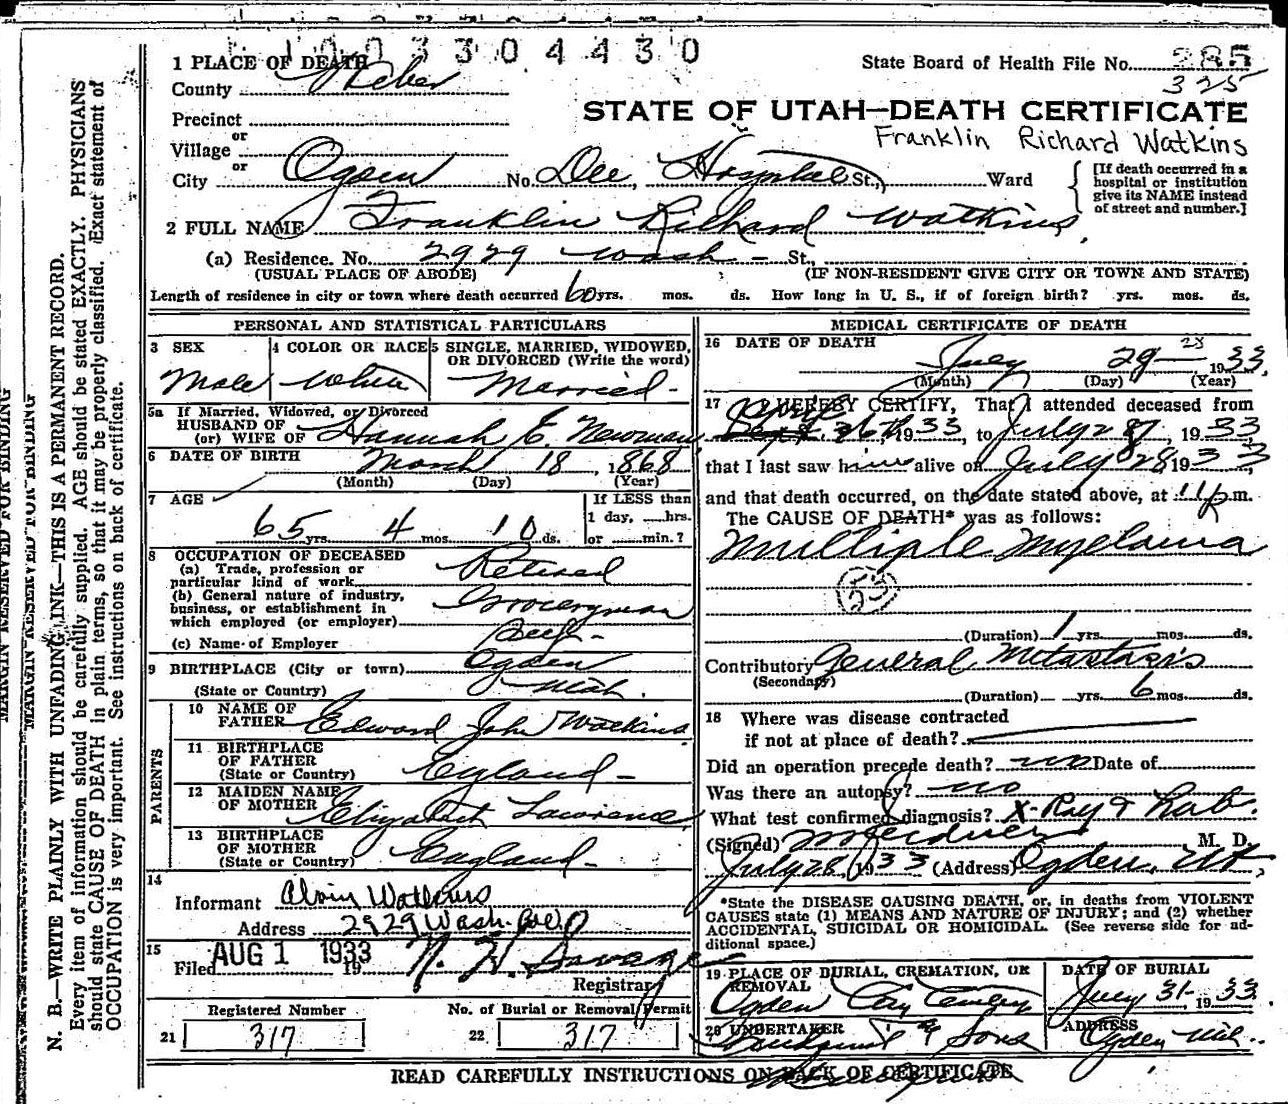 1003304430
1 PLACE OF DEATH
State Board of Health File No. 285
County Weber
325
STATE OF UTAH—DEATH CERTIFICATE
Precinct
Franklin Richard Watkins
or
Village
or
City Ogden No. Dee, Hospital St., Ward
[If death occurred in a hospital or institution give its NAME instead of street and number.]
2 FULL NAME Franklin Richard Watkins,
(a) Residence. No. 2929 Wash — St.,
(USUAL PLACE OF ABODE) (IF NON-RESIDENT GIVE CITY OR TOWN AND STATE)
Length of residence in city or town where death occurred 60 yrs. mos. ds. How long in U. S., if of foreign birth? yrs. mos. ds.
PERSONAL AND STATISTICAL PARTICULARS
3 SEX 4 COLOR OR RACE 5 SINGLE, MARRIED, WIDOWED,
OR DIVORCED (Write the word)
Male White Married
5a If Married, Widowed, or Divorced
HUSBAND OF
(or) WIFE OF Hannah E. Newman
6 DATE OF BIRTH March 18, 1868
(Month) (Day) (Year)
7 AGE
If LESS than
1 day, hrs.
65 yrs 4 mos 10 ds. or min.?
8 OCCUPATION OF DECEASED
(a) Trade, profession or
particular kind of work Retired
(b) General nature of industry,
business, or establishment in
which employed (or employer) Groceryman
(c) Name of Employer
9 BIRTHPLACE (City or town) Ogden
(State or Country) Utah.
PARENTS
10 NAME OF
FATHER Edward John Watkins
11 BIRTHPLACE
OF FATHER
(State or Country) England —
12 MAIDEN NAME
OF MOTHER Elizabeth Lawrence
13 BIRTHPLACE
OF MOTHER
(State or Country) England —
14
Informant Alvin Watkins
Address 2929 Wash.
15
Filed AUG 1 1933 19
N. H. Savage
Registrar
Registered Number No. of Burial or Removal Permit
21 317 22 317
MEDICAL CERTIFICATE OF DEATH
16 DATE OF DEATH
July 29 28 1933
(Month) (Day) (Year)
17 I HEREBY CERTIFY, That I attended deceased from
26th, 1933, to July 28, 1933
that I last saw him alive on July 28 1933
and that death occurred, on the date stated above, at 11 p.m.
The CAUSE OF DEATH* was as follows:
Multiple Myeloma
53
(Duration) 1 yrs. mos. ds.
Contributory General Metastasis
(Secondary)
(Duration) yrs. 6 mos. ds.
18 Where was disease contracted
if not at place of death?
Did an operation precede death? no Date of
Was there an autopsy? no
What test confirmed diagnosis? X-Ray & Lab.
(Signed) M. D.
July 28, 1933 (Address) Ogden, Ut,
*State the DISEASE CAUSING DEATH, or, in deaths from VIOLENT
CAUSES state (1) MEANS AND NATURE OF INJURY; and (2) whether
ACCIDENTAL, SUICIDAL OR HOMICIDAL. (See reverse side for ad-
ditional space.)
19 PLACE OF BURIAL, CREMATION, OR
REMOVAL
Ogden City Cemetery
DATE OF BURIAL
July 31 1933
20 UNDERTAKER
& Sons
ADDRESS
Ogden Utah.
READ CAREFULLY INSTRUCTIONS ON BACK OF CERTIFICATE
MARGIN RESERVED FOR BINDING
MARGIN RESERVED FOR BINDING
N. B.—WRITE PLAINLY WITH UNFADING INK—THIS IS A PERMANENT RECORD.
Every item of information should be carefully supplied. AGE should be stated EXACTLY. PHYSICIANS
should state CAUSE OF DEATH in plain terms, so that it may be properly classified. Exact statement of
OCCUPATION is very important. See instructions on back of certificate.